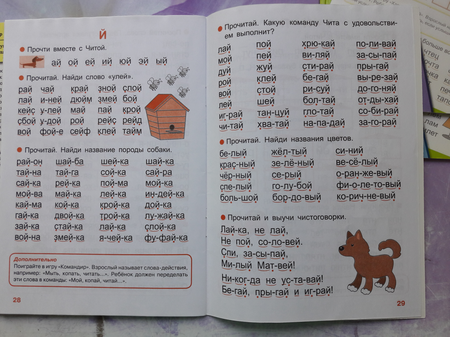 Й
Прочти вместе с Читой.
ай ой ей ий юй эй ый
Прочитай. Найди слово «улей».
рай чай край зной слой
лай и-ней дюйм змей бой
кейс у-лей май лай крой
сбой у-дой рой рейс рейд
вой фой-е сейф клей тайм
Прочитай. Найди название породы собаки.
рай-он шай-ба шей-ка шай-ка
тай-на тай-га сой-ка сай-ра
сай-ка рей-ка пой-ма мой-ка
май-ка мой-ва лей-ка ин-дей-ка
хой-ка
гай-ка двой-ка трой-ка лу-жай-ка
зай-ка стай-ка лай-ка слой-ка
вой-на змей-ка я-чей-ка фу-фай-ка
Дополнительно
Поиграйте в игру «Команды». Взрослый называет слова-действия,
например: «Мыть, копать, читать...». Ребёнок должен переделать
эти слова в команды: «Мой, копай, читай...».
28
Прочитай. Какую команду Чита с удовольстви-
ем выполнит?
лай пой хрю-кай по-ли-вай
мой пей слу-шай за-сы-пай
дуй жуй сти-рай пры-гай
рой клей бе-гай вы-ре-зай
вой стой ри-суй до-го-няй
лей шей бол-тай от-ды-хай
иг-рай тан-цуй гло-тай со-би-рай
чи-тай хва-тай на-па-дай за-го-рай
Прочитай. Найди названия цветов.
бе-лый жёл-тый си-ний
крас-ный зе-лё-ный ве-сё-лый
чёр-ный се-рый о-ран-же-вый
спе-лый го-лу-бой фи-о-ле-то-вый
боль-шой бор-до-вый ко-рич-не-вый
Прочитай и выучи чистоговорки.
Лай-ка, не лай,
Не пой, со-ло-вей.
Спи, за-сы-пай,
Ми-лый Мат-вей!
Ни-ког-да не ус-та-вай!
Бе-гай, пры-гай и иг-рай!
29